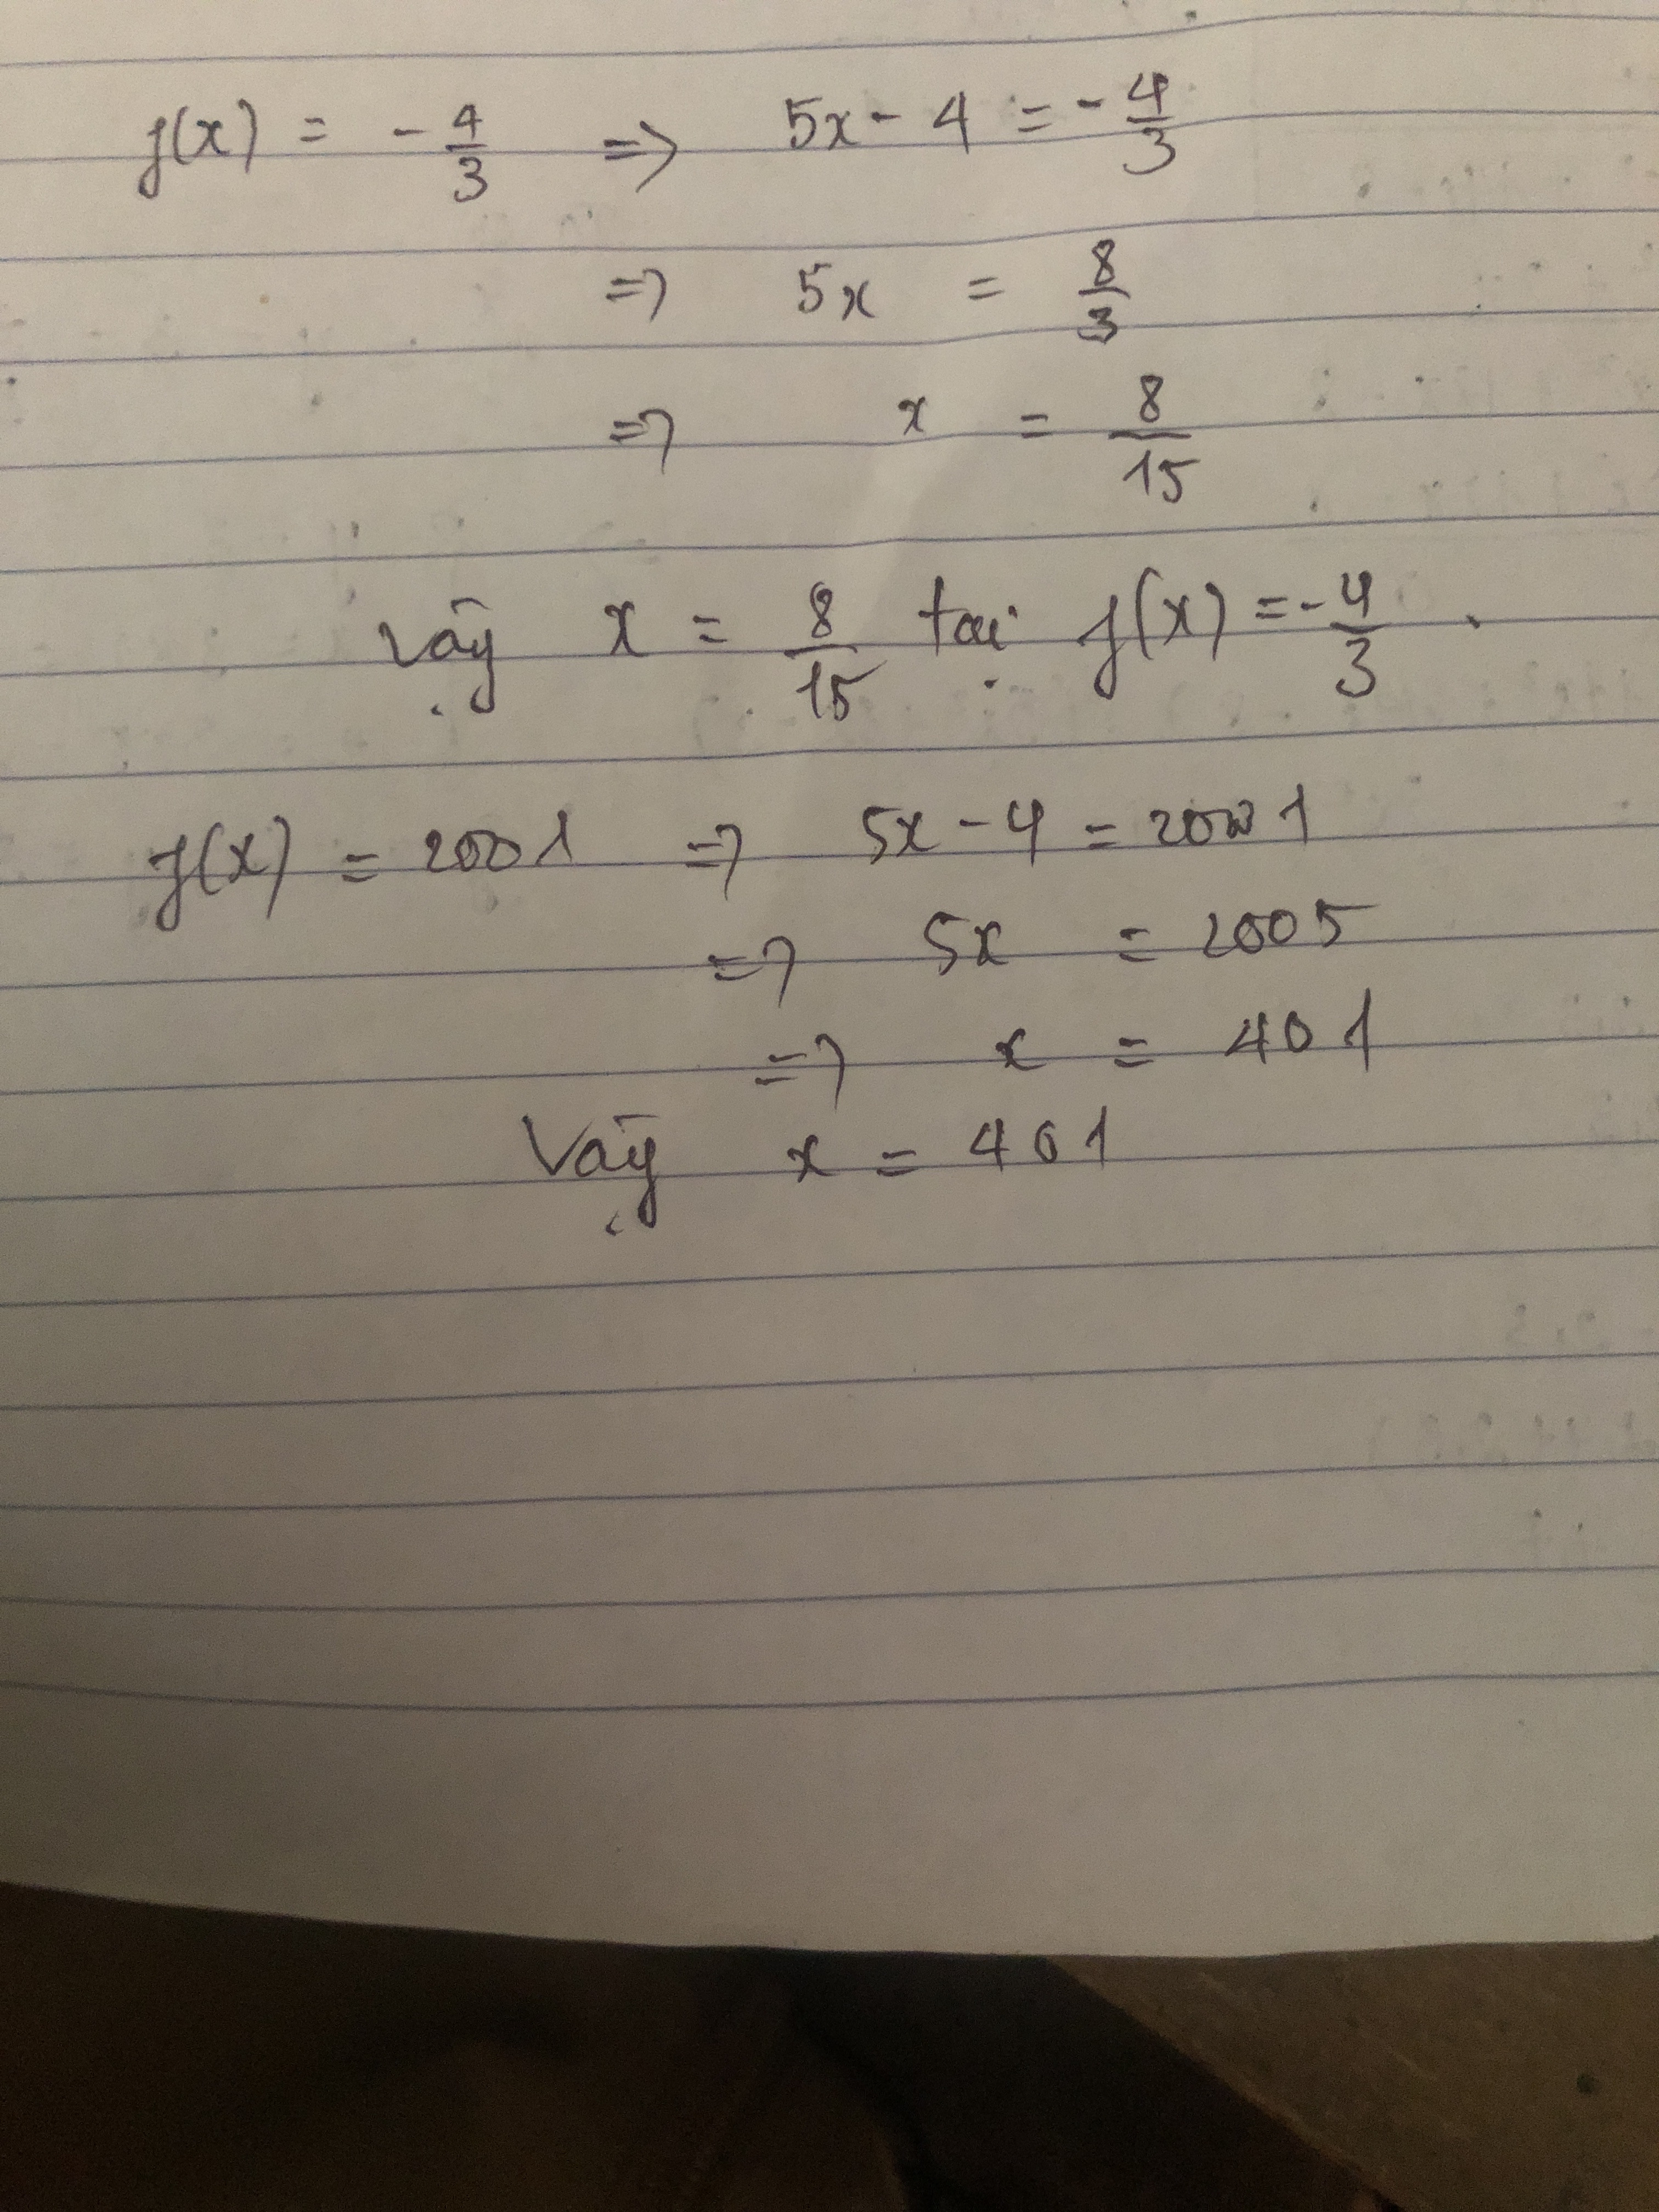 f(x) = - 4/3 => 5x - 4 = - 4/3
=> 5x = 8/3
=> x = 8/15
Vậy x = 8/15 tại f(x) = - 4/3 .
f(x) = 2001 => 5x - 4 = 2001
=> 5x = 2005
=> x = 401
Vậy x = 401